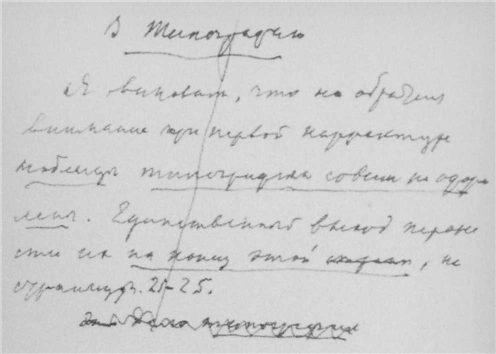 В типографию
Я виноват, что не обратил
внимание при первой корректуре
таблицы типография совсем не
Единственный выход перене
сти их на конец этой, на
страницы 21-25.